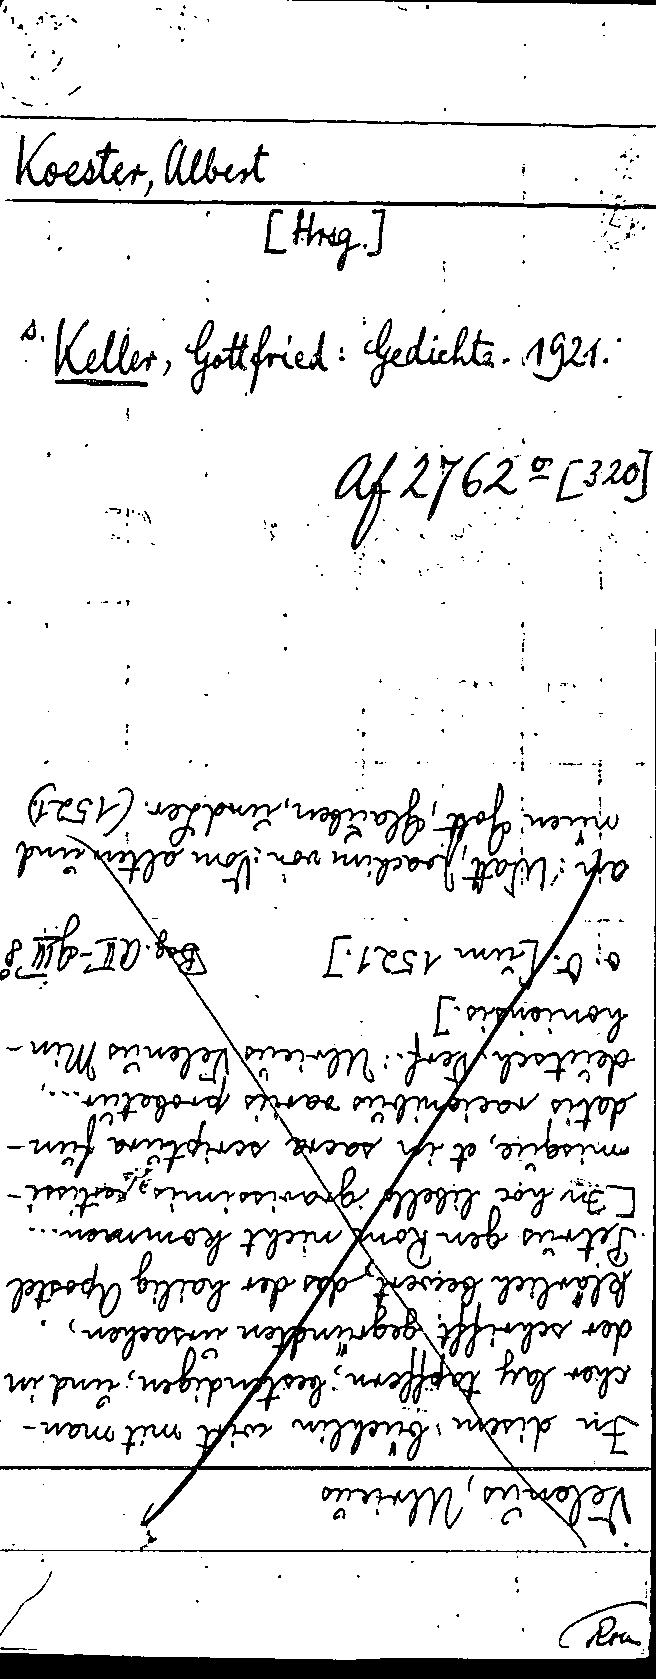 Koester, Albert
[Hrsg.]
s. Keller, Gottfried: Gedichte. 1921.
Af 2762 [320]
Velenus, Ulricus
In disem büchlin wirt mit man-
cher lay topffern, bestendigen, und in
der schrifft gegrundten ursachen,
klärlich bewert, das der hailig Apostel
Petrus gen Rom nicht kommen...
[In hoc libello gravissimis, certissi-
misque, et in sacra scriptura fun-
datis racionibus variis probatur...,
deutsch. Verf.: Ulricus Velenus Min-
honiensis.]
o. O. [um 1521.] Bog. AII-GIII 8°
an: Watt, Joachim von: Vom alten und
nüen Gott, Glauben, und Ler. (1521)
Rom